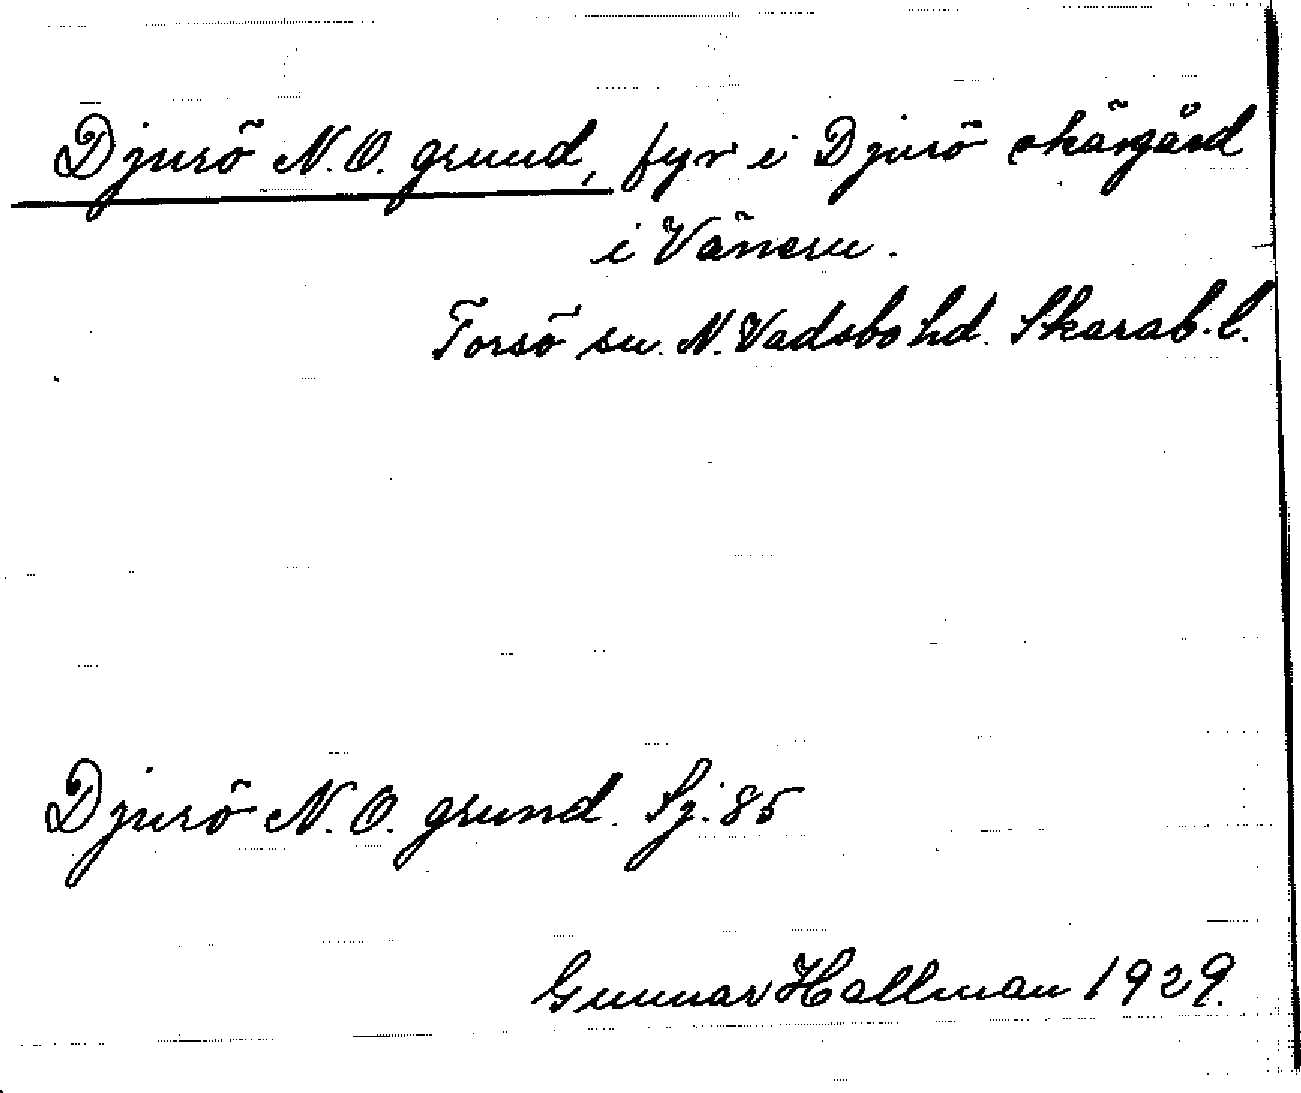 Djurö N.O. grund, fyr i Djurö skärgård
i Vänern.
Torsö sn. N. Vadsbo hd. Skarab. l.
Djurö N.O. grund. Sj. 85
Gunnar Hallman 1929.